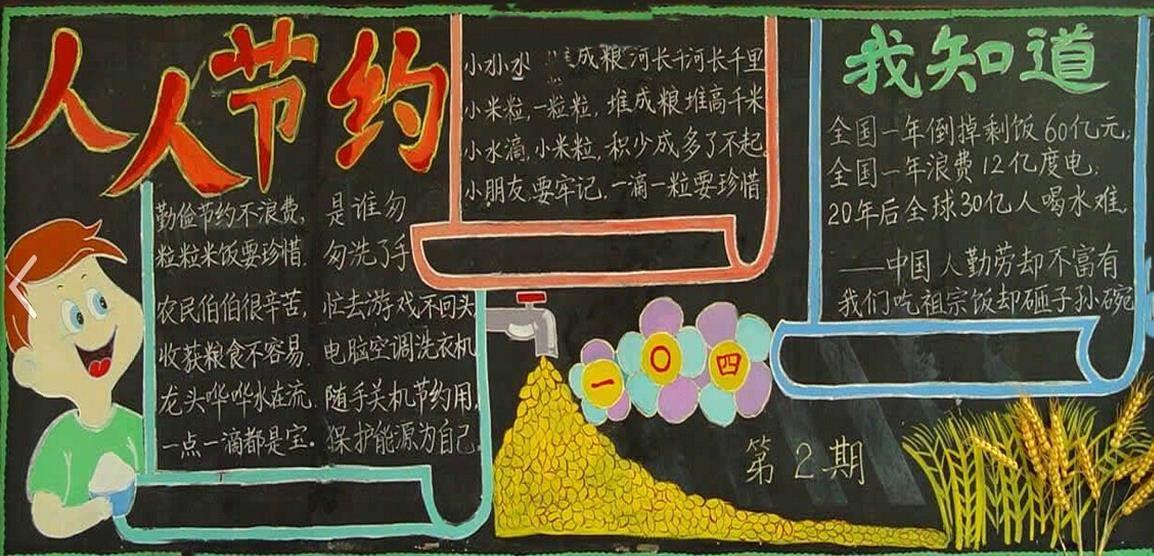 人人节约
勤俭节约不浪费,
粒粒米饭要珍惜.
农民伯伯很辛苦,
收获粮食不容易.
龙头哗哗水在流.
一点一滴都是宝.
是谁匆
匆洗了手
忙去游戏不回头
电脑空调洗衣机
随手关机节约用,
保护能源为自己
小水水 成粮河长千河长千里
小米粒,一粒粒,堆成粮堆高千米
小水滴,小米粒,积少成多了不起。
小朋友,要牢记,一滴一粒要珍惜
一〇四
第2期
我知道
全国一年倒掉剩饭60亿元;
全国一年浪费12亿度电;
20年后全球30亿人喝水难.
——中国人勤劳却不富有
我们吃祖宗饭却砸子孙碗